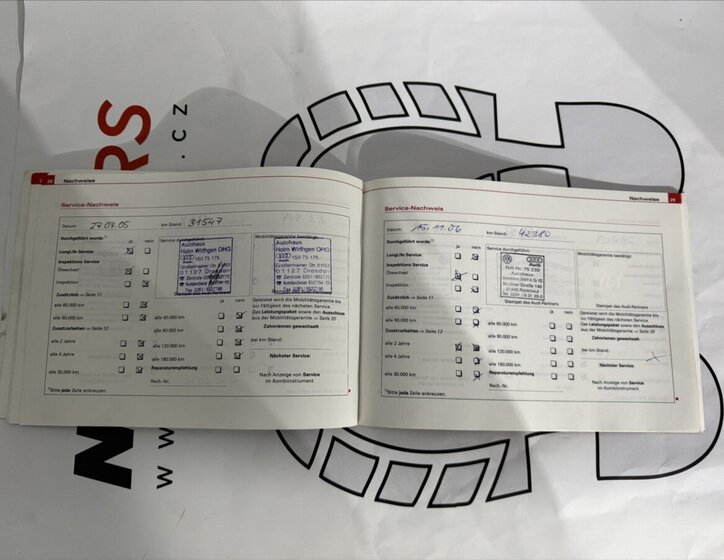 RS
.cz
28 Nachweise
Service-Nachweis
Datum: 27.07.05 km-Stand: 31547
Durchgeführt wurde: ja nein
LongLife Service
Inspektions Service
Ölwechsel
Inspektion
Zusätzlich → Seite 11
alle 60.000 km
alle 90.000 km
Zusatzarbeiten → Seite 12
alle 2 Jahre
alle 4 Jahre
alle 30.000 km
Service durchgeführt:
Autohaus
Holm Wirthgen OHG
Audi 150 75 175
01127 Dresden
ja nein
alle 60.000 km
alle 90.000 km
alle 120.000 km
alle 180.000 km
Reparaturempfehlung
Rech.-Nr.
Mobilitätsgarantie bestätigt:
Autohaus
Holm Wirthgen OHG
Audi 150 75 175
01127 Dresden
Geleistet wird die Mobilitätsgarantie bis
zur Fälligkeit des nächsten Service.
Das Leistungspaket sowie den Ausschluss
aus der Mobilitätsgarantie → Seite 20
Zahnriemen gewechselt
bei km-Stand:
Nächster Service:
Nach Anzeige von Service
im Kombiinstrument
Bitte jede Zeile ankreuzen.
Nachweise 29
Service-Nachweis
Datum: 15.11.06 km-Stand: 42380
Durchgeführt wurde: ja nein
LongLife Service
Inspektions Service
Ölwechsel
Inspektion
Zusätzlich → Seite 11
alle 60.000 km
alle 90.000 km
Zusatzarbeiten → Seite 12
alle 2 Jahre
alle 4 Jahre
alle 30.000 km
Service durchgeführt:
Audi
Autohaus
ja nein
alle 60.000 km
alle 90.000 km
alle 120.000 km
alle 180.000 km
Reparaturempfehlung
Rech.-Nr.
Mobilitätsgarantie bestätigt:
Stempel des Audi-Partners
Geleistet wird die Mobilitätsgarantie bis
zur Fälligkeit des nächsten Service.
Das Leistungspaket sowie den Ausschluss
aus der Mobilitätsgarantie → Seite 20
Zahnriemen gewechselt
bei km-Stand:
Nächster Service:
Nach Anzeige von Service
im Kombiinstrument
Bitte jede Zeile ankreuzen.